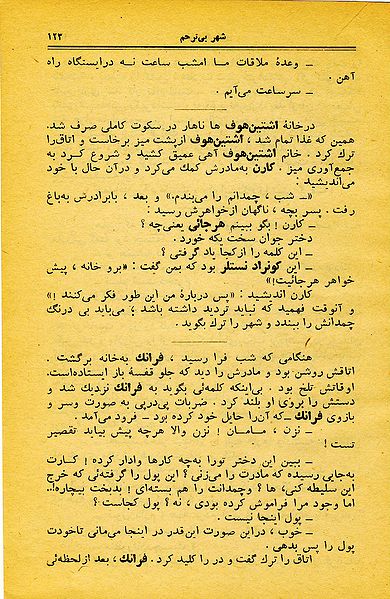 شهر بی‌ترحم
۱۲۳
ـ وعدهٔ ملاقات ما امشب ساعت نه درایستگاه راه
آهن .
ـ سرساعت می‌آیم .
درخانهٔ آشتین‌هوف ها ناهار در سکوت کاملی صرف شد.
همین که غذا تمام شد ، آشتین‌هوف ازپشت میز برخاست و اتاق‌را
ترك کرد . خانم آشتین‌هوف آهی عمیق کشید و شروع کرد به
جمع‌آوری میز . کارن به‌مادرش کمك می‌کرد و درآن حال با خود
می‌اندیشید :
«ـ شب ، چمدانم را می‌بندم.» و بعد ، بابرادرش به‌باغ
رفت . پسر بچه ، ناگهان ازخواهرش رسید :
ـ کارن ! بگو ببینم هرجائی یعنی‌چه ؟
دختر جوان سخت یکه خورد .
ـ این کلمه را ازکجا یاد گرفتی ؟
ـ این کونراد نستلر بود که بمن گفت : «برو خانه ، پیش
خواهر هرجائیت!»
کارن اندیشید : «پس دربارهٔ من این طور فکر می‌کنند !»
و آنوقت فهمید که نباید تردید داشته باشد ؛ می‌باید بی درنگ
چمدانش را ببندد و شهر را ترك بگوید .
هنگامی که شب فرا رسید ، فرانك به‌خانه برگشت .
اتاقش روشن بود و مادرش را دید که جلو قفسهٔ باز ایستاده‌است.
اوقاتش تلخ بود . بی‌اینکه کلمه‌ئی بگوید به فرانك نزدیك شد و
دستش را بروی او بلند کرد . ضربات پی‌درپی به صورت وسر و
بازوی فرانك ـ که آن‌را حایل خود کرده بود ـ فرود می‌آمد .
ـ نزن ، مـامـان ! نزن والا هرچه پیش بیاید تقصیر
تست !
ـ ببین این دختر تورا به‌چه کارها وادار کرده ! کـارت
به‌جایی رسیده که مادرت را می‌زنی ؟ این پول را گرفته‌ئی که خرج
این سلیطه کنی، ها ؟ وچمدانت را هم بسته‌ای ! بدبخت بیچاره!..
اما وجود مرا فراموش کرده بودی ، نه ؟ پول کجاست ؟
ـ پول اینجا نیست .
ـ خوب ، دراین صورت این‌قدر در اینجا می‌مانی تاخودت
پول را پس بدهی .
اتاق را ترك گفت و در را کلید کرد . فرانك ، بعد ازلحظه‌ئی